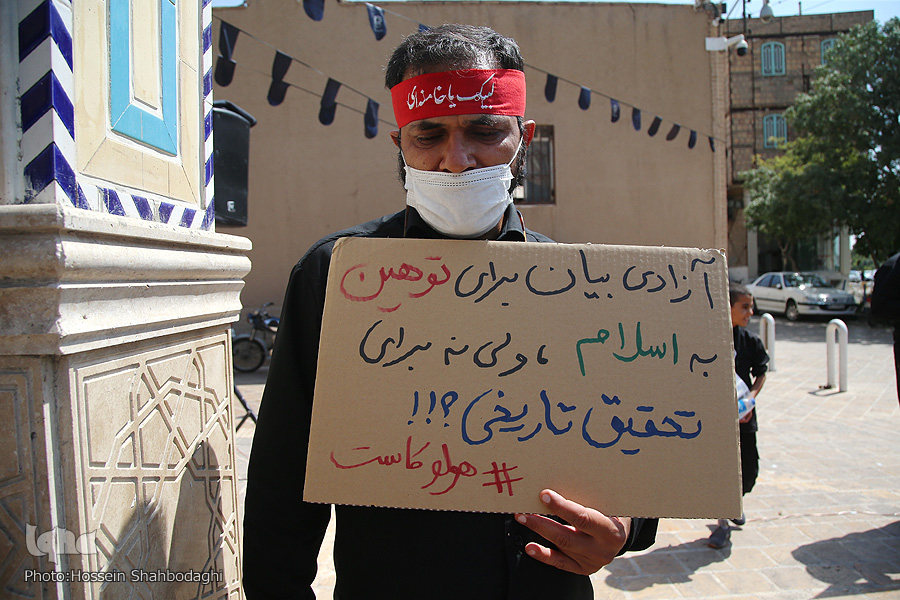 لبیک یا خامنه‌ای
آزادی بیان برای توهین
به اسلام ، ولی نه برای
تحقیق تاریخی؟!!!
#هولوکاست
iqna
Photo:Hossein Shahbodaghi